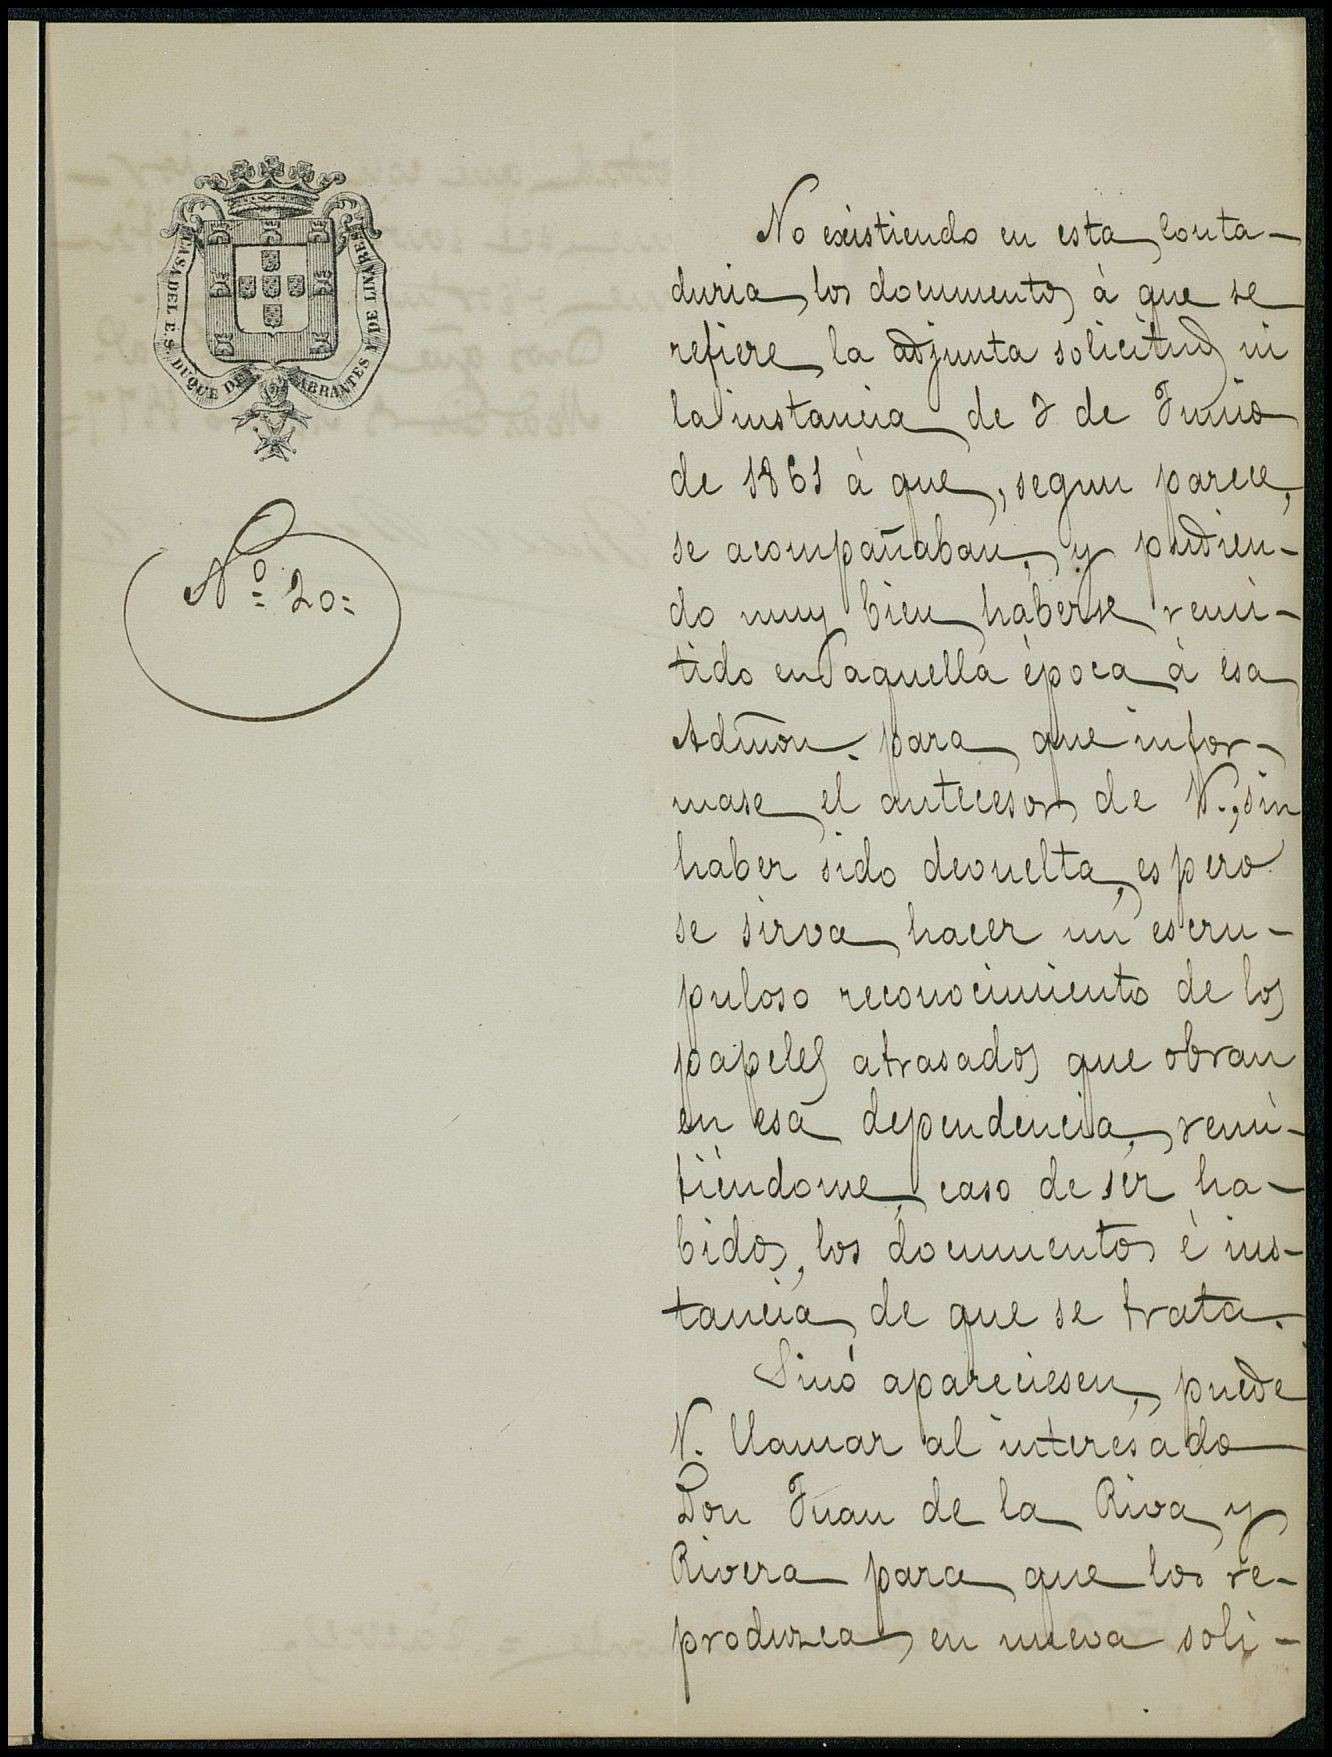 CASA DEL E. S. DUQUE DE ABRANTES Y DE LINARES
Nº 20=
No existiendo en esta Conta-
duria los documentos à que se
refiere la adjunta solicitud ni
la instancia de 7 de Junio
de 1861 à que, segun parece,
se acompañaban, y pudien-
do muy bien haberse remi-
tido en aquella época à esa
Admon. para que infor-
mase el antecesor de V., sin
haber sido devuelta, espero
se sirva hacer un escru-
puloso reconocimiento de los
papeles atrasados que obran
en esa dependencia, remi-
tiéndome, caso de sér ha-
bidos, los documentos é ins-
tancia de que se trata.
Sinó apareciesen, puede
V. llamar al interesado
Don Juan de la Riva y
Rivera para que los re-
produzca en nueva soli-